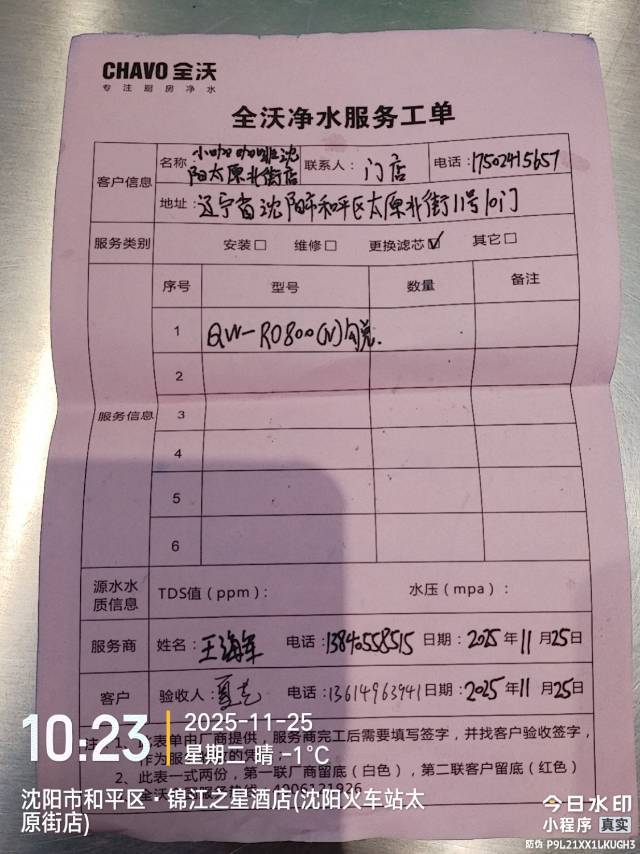 CHAVO 全沃
专注厨房净水
全沃净水服务工单
客户信息
名称：小咖咖啡沈阳太原北街店
联系人：门店
电话：17502415657
地址：辽宁省沈阳市和平区太原北街11号10门
服务类别 安装□ 维修□ 更换滤芯☑ 其它□
服务信息
序号 型号 数量 备注
1 QW-RO800(N)
2
3
4
5
6
源水水质信息 TDS值（ppm）： 水压（mpa）：
服务商 姓名：王海军 电话：13840558515 日期：2025年11月25日
客户 验收人： 电话：13614963941 日期：2025年11月25日
注 1、此表单由厂商提供，服务商完工后需要填写签字，并找客户验收签字，
作为服务
2、此表一式两份，第一联厂商留底（白色），第二联客户留底（红色）
全沃 4006121926
10:23
2025-11-25
星期二 晴 -1℃
沈阳市和平区·锦江之星酒店(沈阳火车站太原街店)
今日水印
小程序 真实
防伪 P9L21XX1LKUGH3